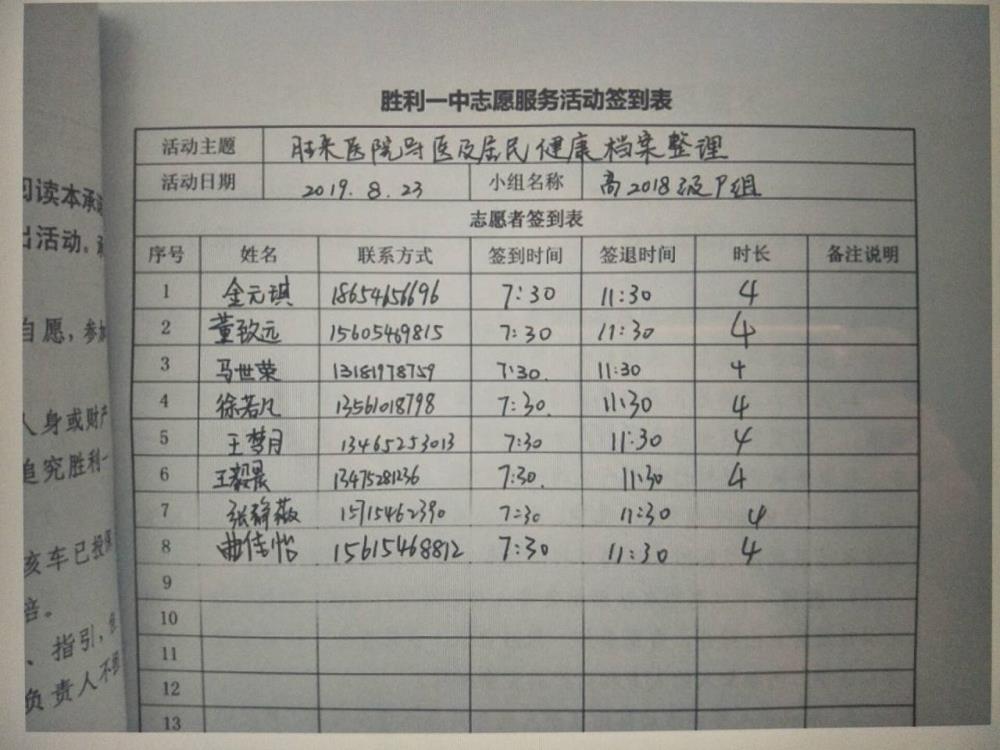 胜利一中志愿服务活动签到表
活动主题 旺来医院导医及居民健康档案整理
活动日期 2019.8.23 小组名称 高2018级P组
志愿者签到表
序号 姓名 联系方式 签到时间 签退时间 时长 备注说明
1 金元琪 18654656696 7:30 11:30 4
2 董致远 15605469815 7:30 11:30 4
3 马世荣 13181978759 7:30. 11:30 4
4 徐若凡 13561018798 7:30. 11:30 4
5 王梦月 13465253013 7:30 11:30 4
6 王毅晨 13475281236 7:30. 11:30 4
7 张静薇 15715462390 7:30 11:30 4
8 曲佳怡 15615468812 7:30 11:30 4
9
10
11
12
13
阅读本承
出活动。
自愿，参加
人身或财产
追究胜利一
亥车已投保
倍。
、指引，
负责人不